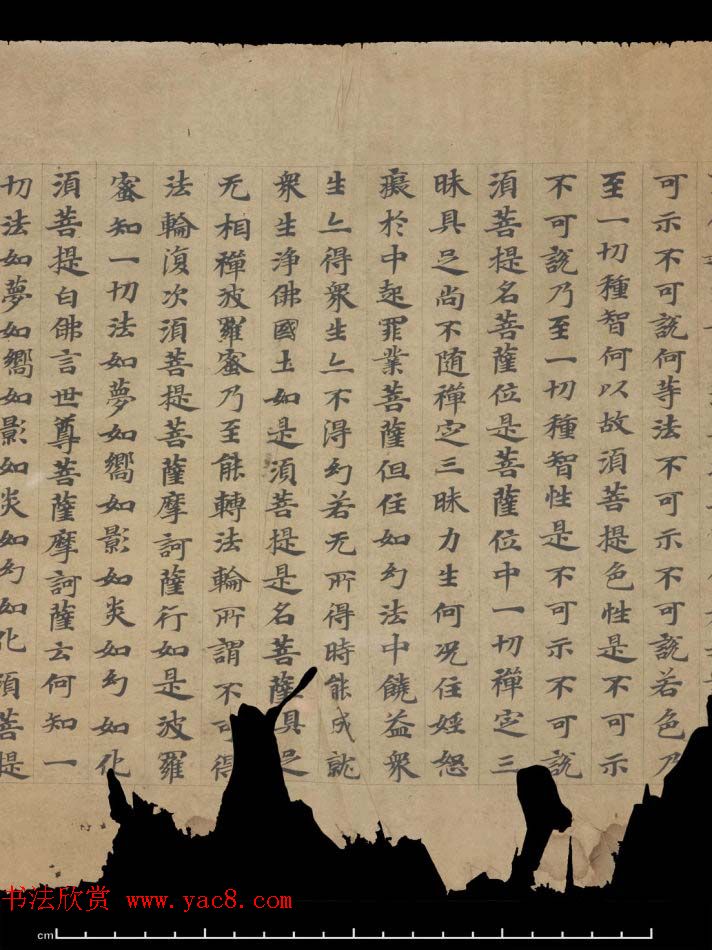 可示不可説何等法不可示不可説若色乃
至一切種智何以故湏菩提色性是不可示
不可説乃至一切種智性是不可示不可説
湏菩提名菩薩位是菩薩位中一切禪定三
昧具足尚不随禪定三昧力生何况住婬怒
癡於中起罪業菩薩但住如幻法中饒益衆
生亦得衆生亦不得幻若无所得時能成就
衆生浄佛國土如是湏菩提是名菩薩具足
无相禪波羅蜜乃至能轉法輪所謂不可得
法輪復次湏菩提菩薩摩訶薩行如是波羅
蜜知一切法如夢如嚮如影如炎如幻如化
湏菩提白佛言世尊菩薩摩訶薩云何知一
切法如夢如嚮如影如炎如幻如化湏菩提
书法欣赏 www.yac8.com
cm